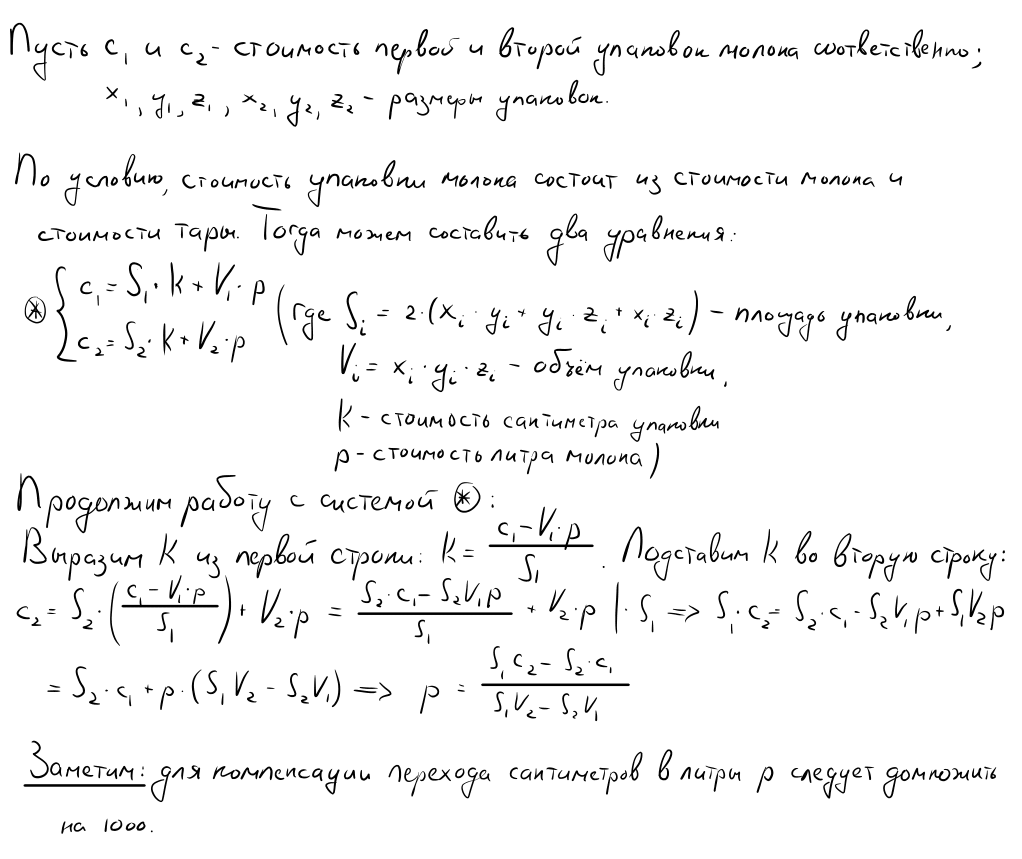 Пусть c₁ и c₂ - стоимость первой и второй упаковок молока соответственно;
x₁, y₁, z₁, x₂, y₂, z₂ - размеры упаковок.
По условию, стоимость упаковки молока состоит из стоимости молока и
стоимости тары. Тогда можем составить два уравнения:
⊛ { c₁ = S₁·k + V₁·p (где Sᵢ = 2·(xᵢ·yᵢ + yᵢ·zᵢ + xᵢ·zᵢ) - площадь упаковки,
c₂ = S₂·k + V₂·p
Vᵢ = xᵢ·yᵢ·zᵢ - объём упаковки,
k - стоимость сантиметра упаковки
p - стоимость литра молока)
Продолжим работу с системой ⊛:
Выразим k из первой строки: k = (c₁ - V₁·p)/S₁. Подставим k во вторую строку:
c₂ = S₂·((c₁ - V₁·p)/S₁) + V₂·p = (S₂·c₁ - S₂V₁p)/S₁ + V₂·p |·S₁ => S₁·c₂ = S₂·c₁ - S₂V₁p + S₁V₂p
= S₂·c₁ + p·(S₁V₂ - S₂V₁) => p = (S₁c₂ - S₂·c₁)/(S₁V₂ - S₂V₁)
Заметим: для компенсации перехода сантиметров в литры p следует домножить
на 1000.